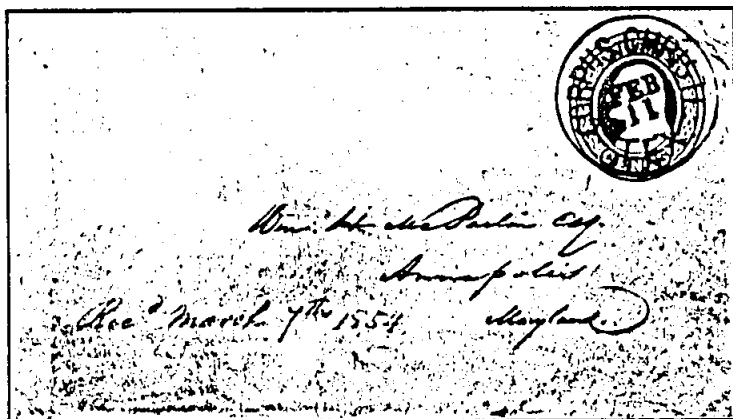 FEB
11
CENTS
Wm. H. McParlin Esq.
Annapolis
Maryland.
Recd March 7th 1854